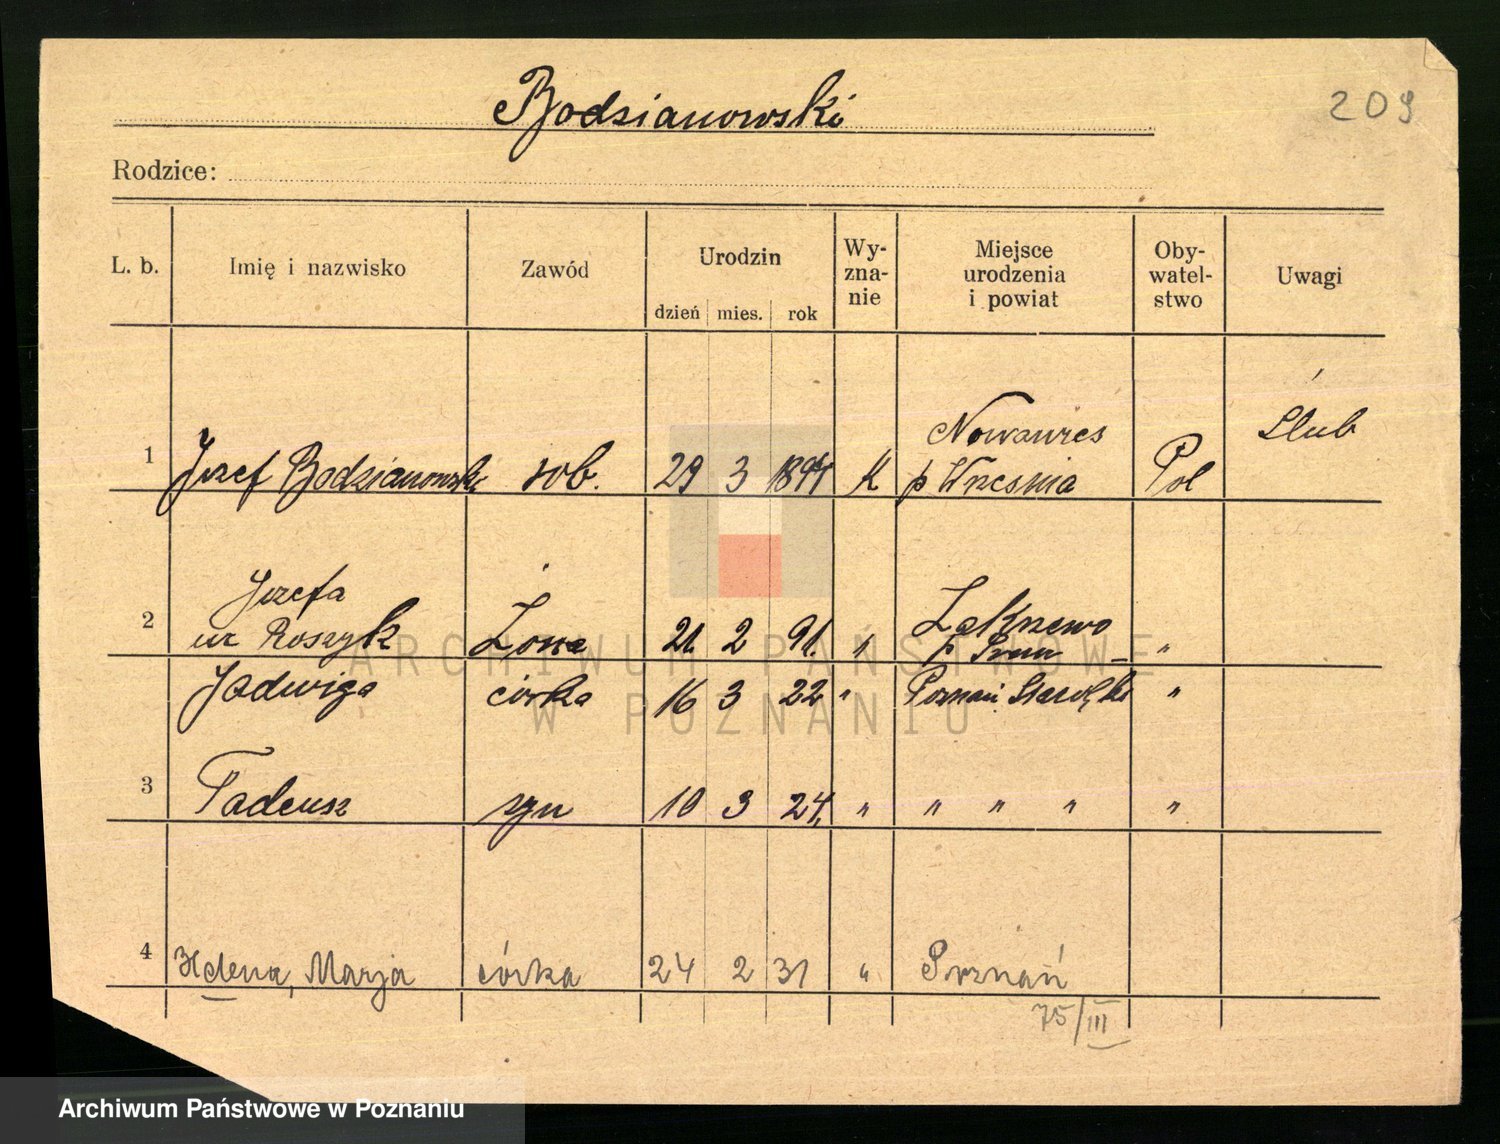 Bodzianowski
209
Rodzice:
L. b. Imię i nazwisko Zawód Urodzin Wy-zna-nie Miejsce urodzenia i powiat Oby-watel-stwo Uwagi
dzień mies. rok
Nowawieś Ślub
1 Józef Bodzianowski rob. 29 3 K p Września Pol
Józefa
2 ur Roszyk żona 21. 2 91. " Zakrzewo "
p Śrem
Jadwiga córka 16 3 22 " Poznań Starołęka "
3 Tadeusz syn 10 3 24. " " " " "
4 Helena, Marja córka 24 2 31 " Poznań
75/III
ARCHIWUM PAŃSTWOWE
W POZNANIU
Archiwum Państwowe w Poznaniu